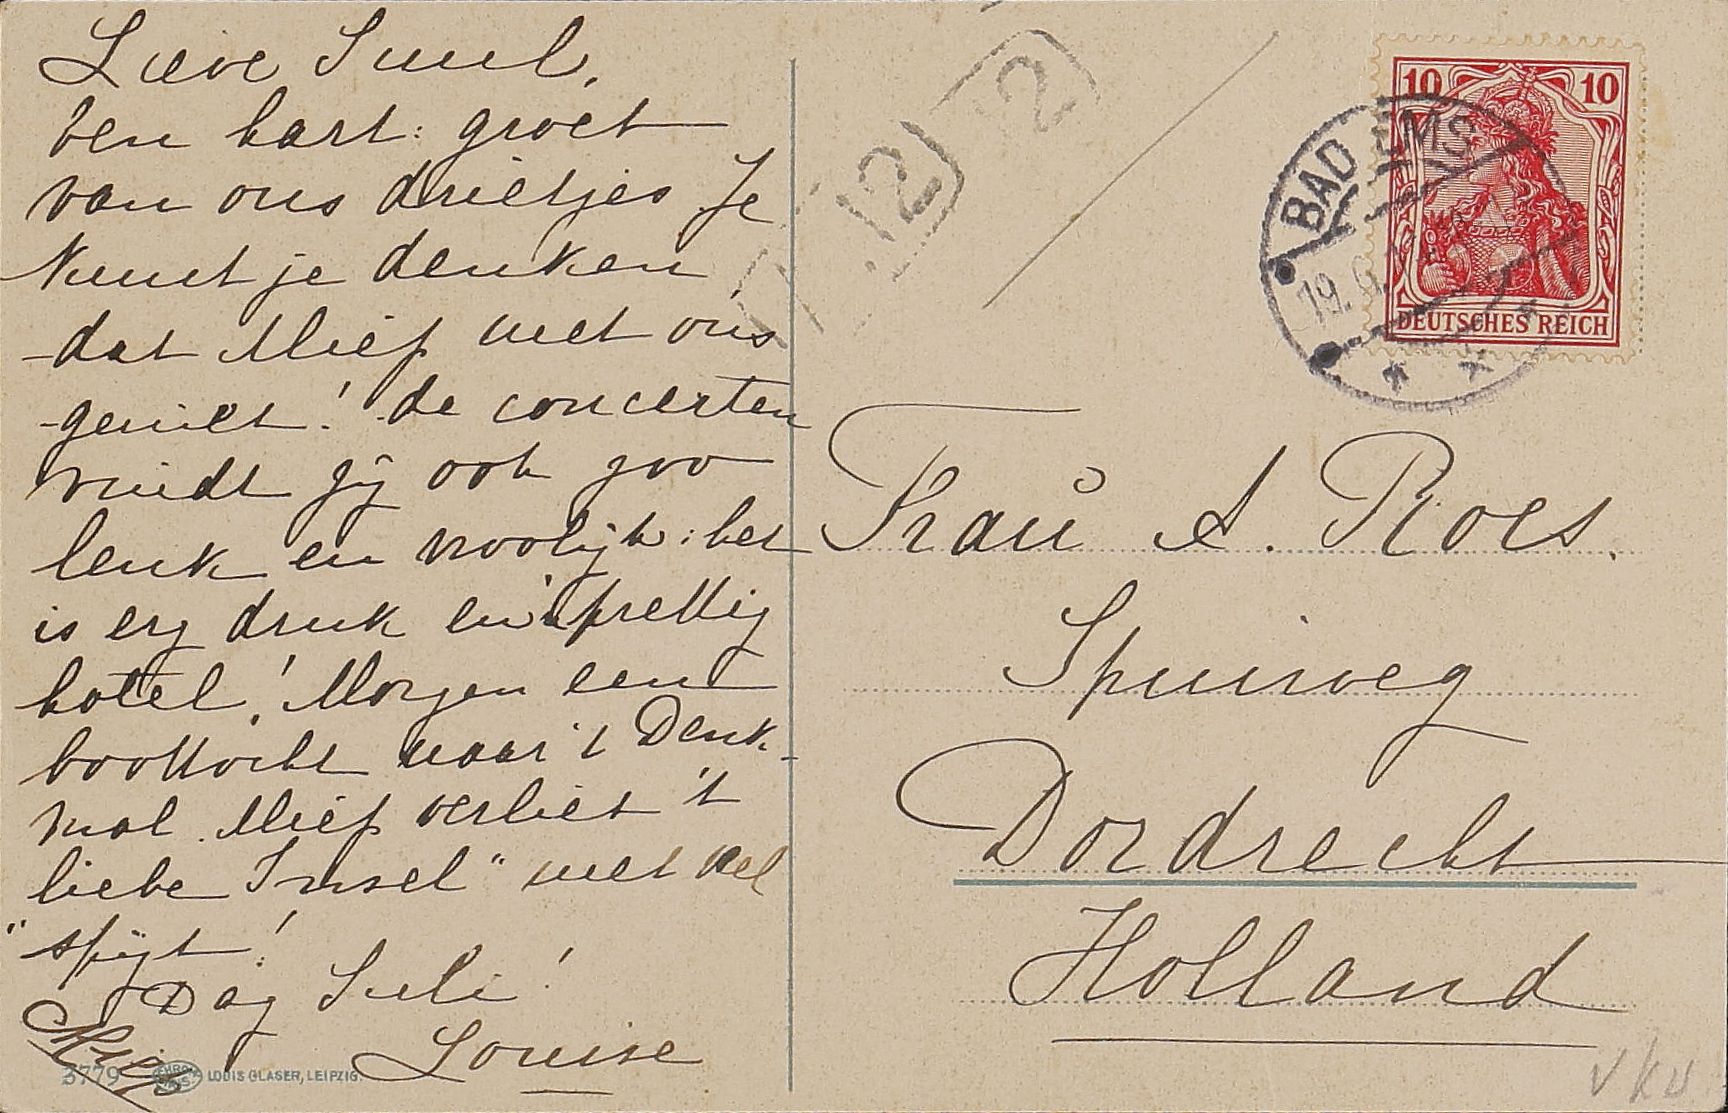 Lieve Suul,
een hart: groet
van ons drietjes Je
kunt je denken,
dat Mief met ons
geniet! de concerten
vindt zij ook zoo
leuk en vroolijk: het
is erg druk en prettig
hotel! Morgen een
boottocht naar 't Denk-
mal. Mief verliet 't
"liebe Insel" met veel
spijt!
Dag Suli!
Louise
Mief
3779 LOUIS GLASER, LEIPZIG.
12
12
10 10
DEUTSCHES REICH
BAD EMS
19.6.
Frau A. Roes.
Spuiweg
Dordrecht
Holland